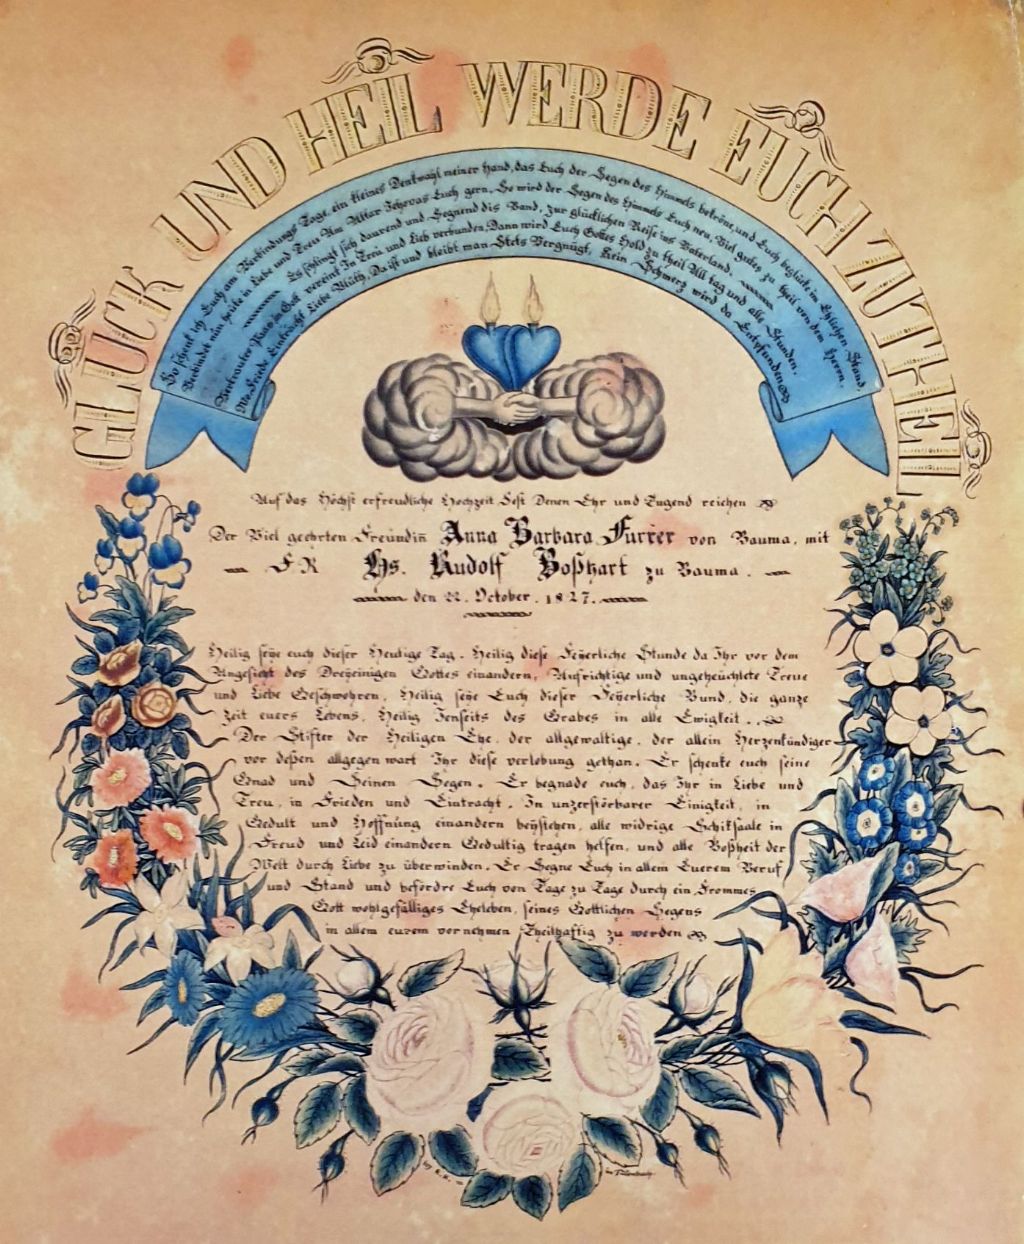 GLUCK UND HEIL WERDE EUCH ZUTHEIL
So schenk ich Euch am Verbindungs Tage, ein kleines Denkmahl meiner Hand, das Euch der Segen des Himmels bekröne, und Euch beglücke im Ehlichen Stand.
Verbindet nun heute in Liebe und Treu Am Altar Jehovas Euch gern, So wird der Segen des Himmels Euch neu, Viel gutes zu theil von dem Herrn.
Es schlingt sich daurend und Segnend dis Band, Zur glücklichen Reise ins Vaterland.
Vertrautes Paar in Gott vereint In Treu und Lieb verbunden, Dann wird Euch Gottes Hold zu theil All tag und alle Stunden.
Wo Friede Eintracht Liebe Blüth, Da ist und bleibt man Stets Vergnügt, Kein Schmerz wird da Entpfunden
Auf das Höchst erfreudliche Hochzeit Fest Denen Ehr und Tugend reichen
Der Viel geehrten Freundin Anna Barbara Furrer von Bauma, mit
FR Hs. Rudolf Boßhart zu Bauma.
den 22. October. 1827.
Heilig seÿe euch dieser Heutige Tag. Heilig diese Feÿerliche Stunde da Ihr vor dem
Angesicht des Dreÿeinigen Gottes einandern, Aufrichtige und ungeheüchlete Treue
und Liebe Geschwohren, Heilig seÿe Euch dieser Feÿerliche Bund, die ganze
Zeit euers Lebens, Heilig Jenseits des Grabes in alle Ewigkeit.
Der Stifter der Heiligen Ehe, der allgewaltige, der allein Herzenkündiger
vor deßen allgegenwart Ihr diese verlobung gethan. Er schenke euch seine
Gnad und Seinen Segen. Er begnade euch, das Ihr in Liebe und
Treu, in Frieden und Eintracht. In unzerstörbarer Einigkeit, in
Gedult und Hoffnung einandern beÿstehen, alle widrige Schiksaale in
Freud und Leid einandern Gedultig tragen helfen, und alle Boßheit der
Welt durch Liebe zu überwinden. Er Segne Euch in allem Euerem Beruf
und Stand und befördre Euch von Tage zu Tage durch ein Frommes
Gott wohlgefälliges Eheleben, seines Göttlichen Segens
in allem eurem vornehmen Theilhaftig zu werden